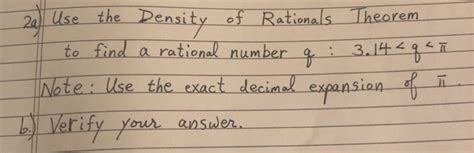 2a) Use the Density of Rationals Theorem
to find a rational number q : 3.14 < q < π
Note: Use the exact decimal expansion of π.
b.) Verify your answer.